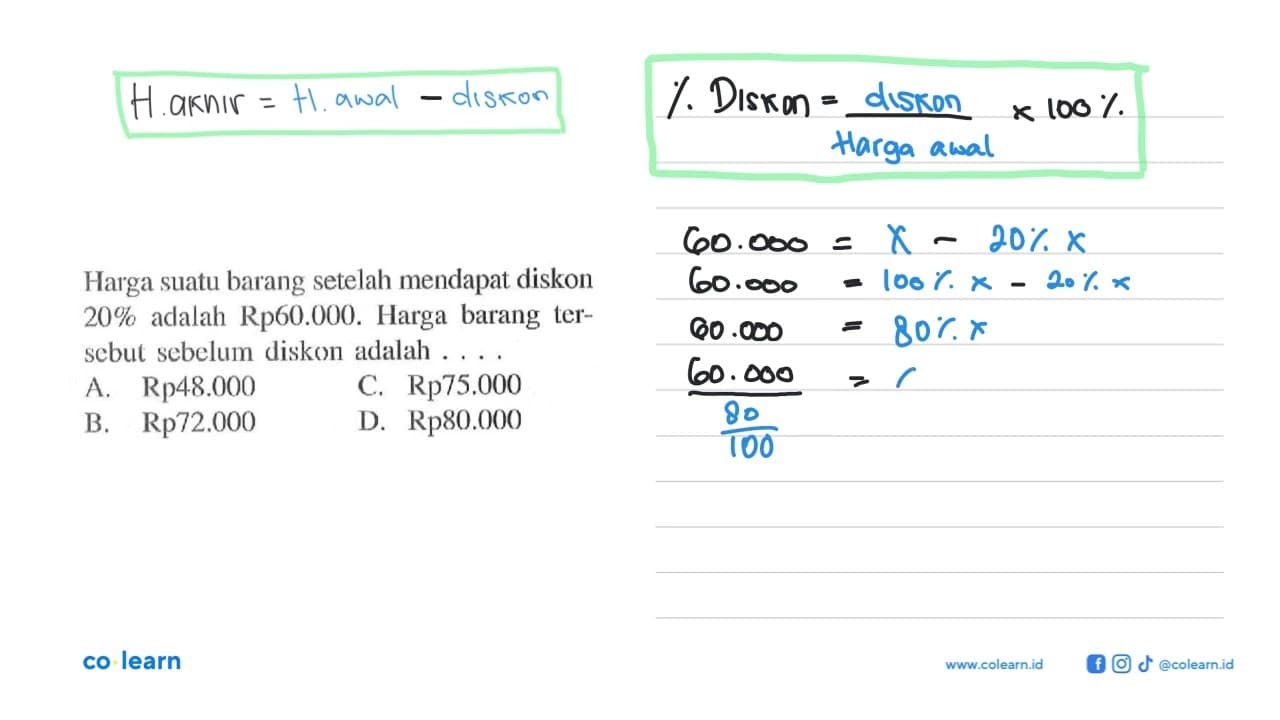 H.akhir = H. awal - diskon
% Diskon = diskon × 100%
Harga awal
Harga suatu barang setelah mendapat diskon
20% adalah Rp60.000. Harga barang ter-
sebut sebelum diskon adalah . . . .
A. Rp48.000 C. Rp75.000
B. Rp72.000 D. Rp80.000
60.000 = x - 20% x
60.000 = 100% x - 20% x
60.000 = 80% x
60.000 =
80
100
co learn
www.colearn.id @colearn.id